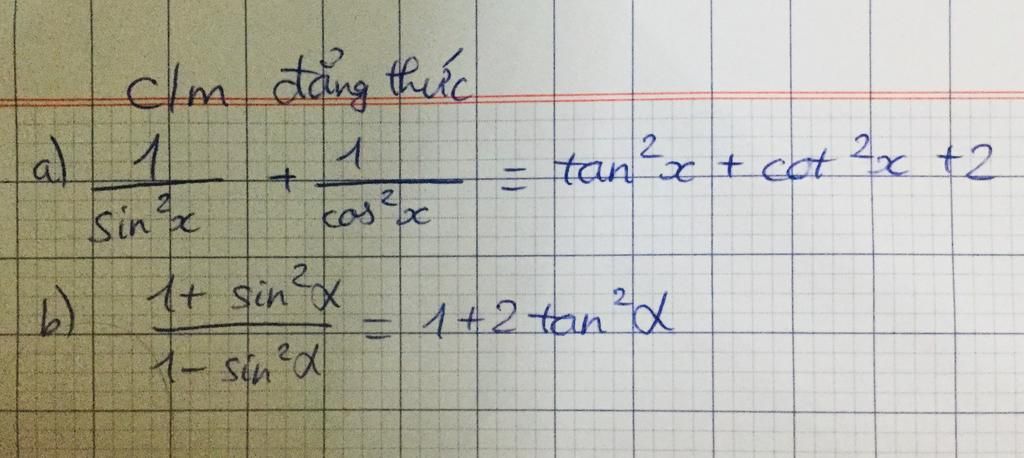 c/m đẳng thức
a) 1/sin²x + 1/cos²x = tan²x + cot²x + 2
b) (1 + sin²α)/(1 - sin²α) = 1 + 2 tan²α